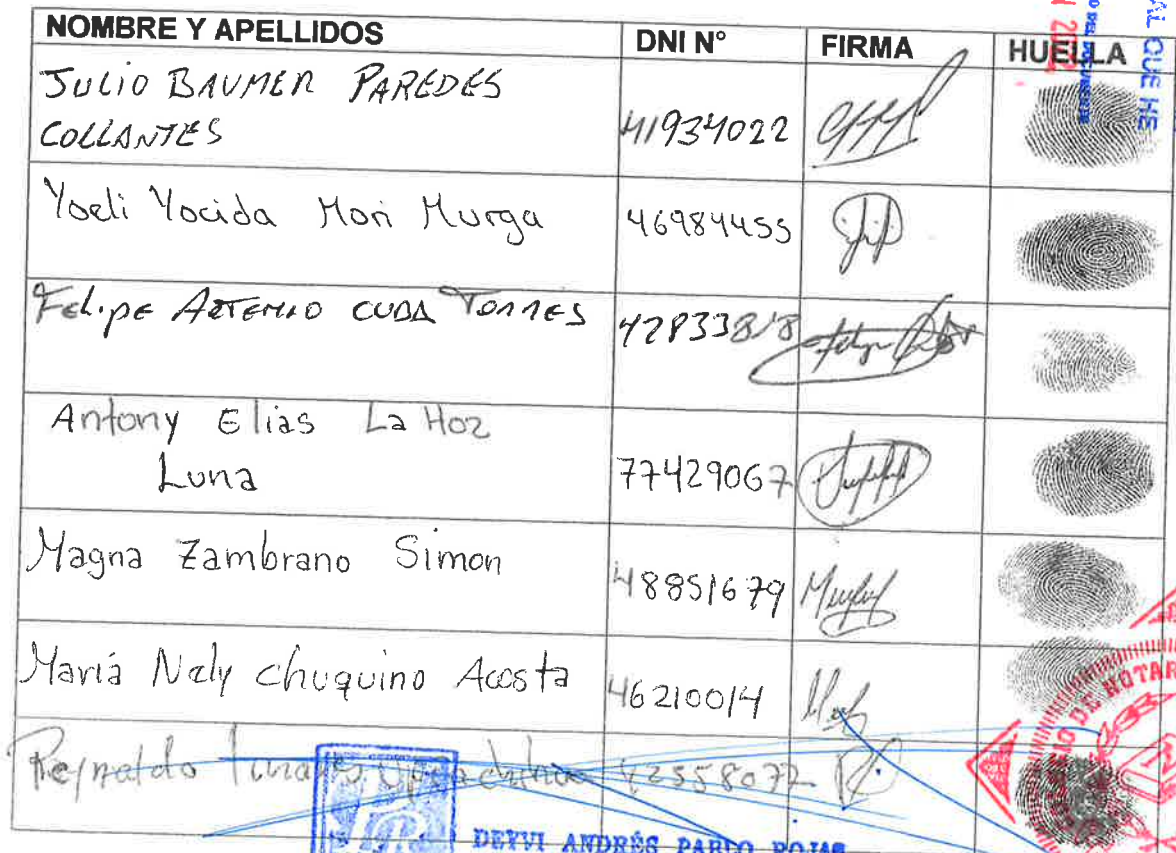 AL QUE HE
NOMBRE Y APELLIDOS DNI N° FIRMA HUELLA
JULIO BAUMER PAREDES
COLLANTES 41934022
Yoeli Yocida Mori Murga 46984455
Felipe ARTEMIO CUBA TORRES 42833818
Antony Elias La Hoz
Luna 77429067
Magna Zambrano Simon 48851679
Mariá Nely chuquino Acosta 46210014
Reynaldo 42558072
NOTAR
DEYVI ANDRÉS PARDO ROJAS